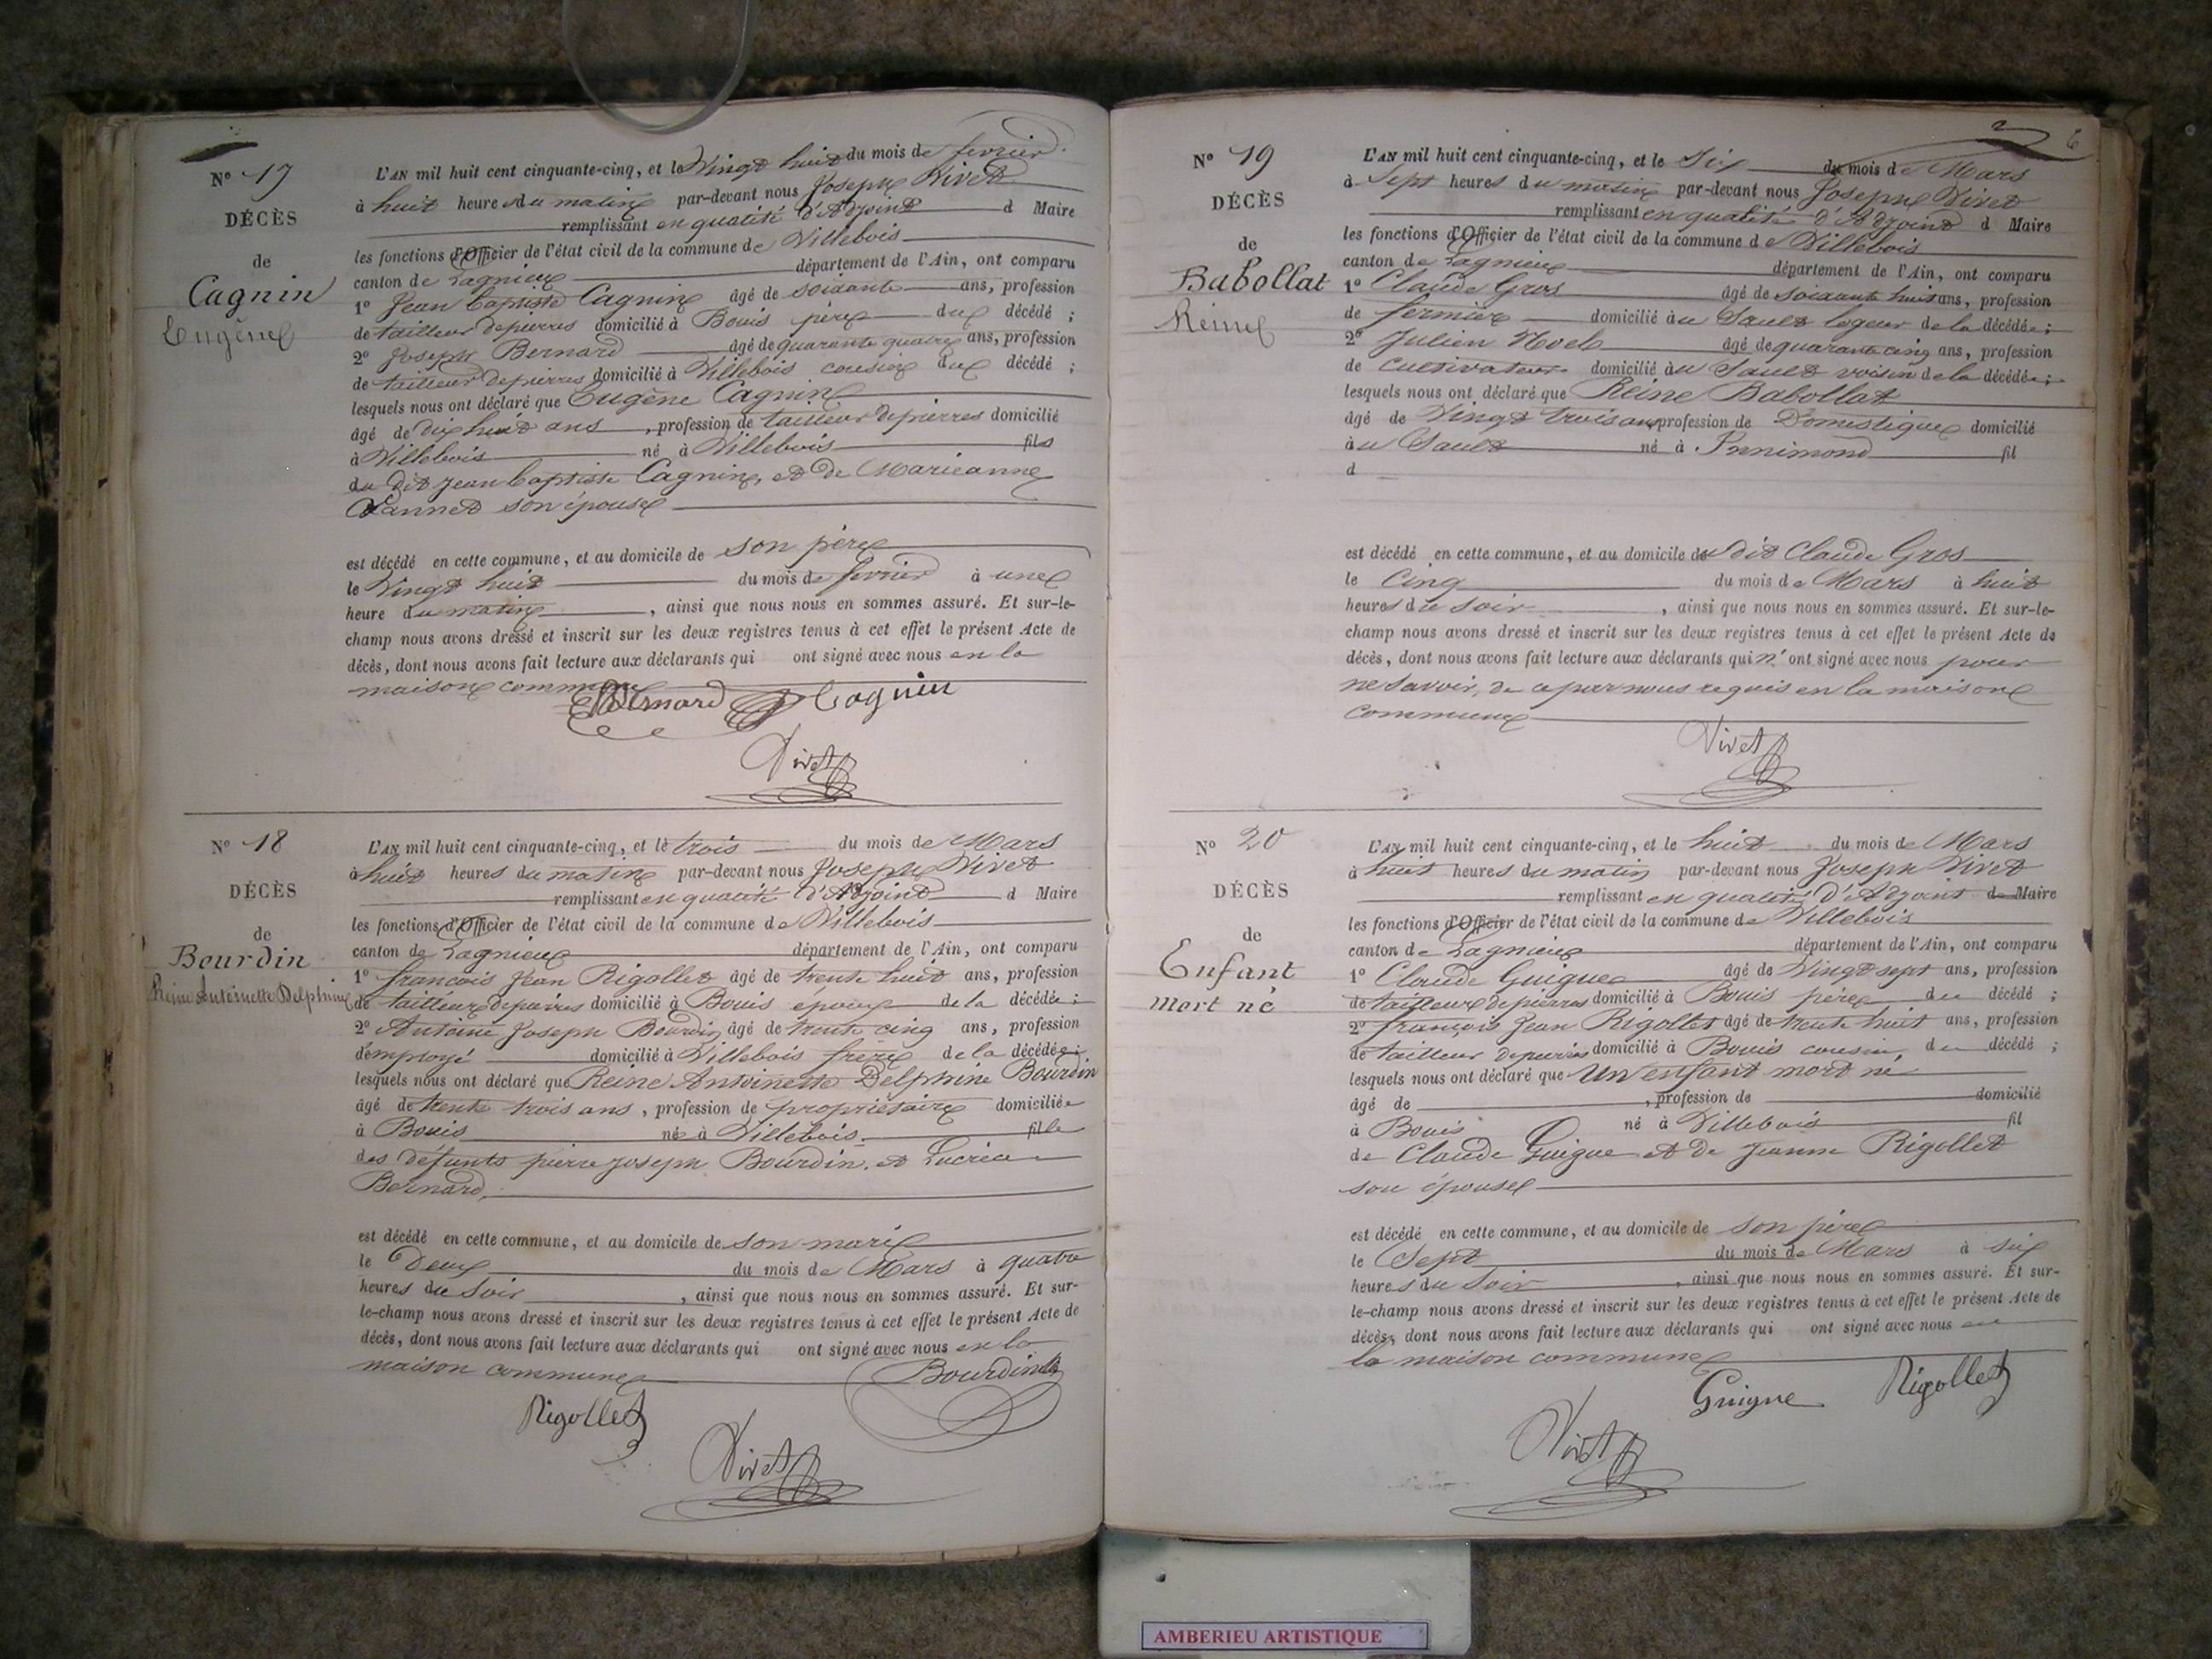 Nº 17
DÉCÈS
de
Cagnin
Eugène
L'AN mil huit cent cinquante-cinq, et le Vingt huit du mois de fevrier
à huit heures du matin par-devant nous Joseph Vivet
remplissant en qualité d'Adjoint d Maire
les fonctions d'Officier de l'état civil de la commune de Villebois
canton de Lagnieu département de l'Ain, ont comparu
1º Jean Baptiste Cagnin âgé de soixante ans, profession
de tailleur de pierres domicilié à Bouis père du décédé ;
2º Joseph Bernard âgé de quarante quatre ans, profession
de tailleur de pierres domicilié à Villebois cousin du décédé ;
lesquels nous ont déclaré que Eugène Cagnin
âgé de dix huit ans, profession de tailleur de pierres domicilié
à Villebois né à Villebois fils
du dit Jean Baptiste Cagnin, et de Marieanne
Vannet son épouse
est décédé en cette commune, et au domicile de son père
le Vingt huit du mois de fevrier à une
heure du matin, ainsi que nous nous en sommes assuré. Et sur-le-
champ nous avons dressé et inscrit sur les deux registres tenus à cet effet le présent Acte de
décès, dont nous avons fait lecture aux déclarants qui ont signé avec nous en la
maison commune
Bernard Cagnin
Vivet
Nº 18
DÉCÈS
de
Bourdin
Reine Antoinette Delphine
L'AN mil huit cent cinquante-cinq, et le trois du mois de Mars
à huit heures du matin par-devant nous Joseph Vivet
remplissant en qualité d'Adjoint d Maire
les fonctions d'Officier de l'état civil de la commune de Villebois
canton de Lagnieu département de l'Ain, ont comparu
1º françois Jean Rigollet âgé de trente huit ans, profession
de tailleur de pierres domicilié à Bouis epoux de la décédée ;
2º Antoine Joseph Bourdin âgé de trente cinq ans, profession
d'employé domicilié à Villebois frère de la décédée ;
lesquels nous ont déclaré que Reine Antoinette Delphine Bourdin
âgé de trente trois ans, profession de propriétaire domiciliée
à Bouis née à Villebois fille
des défunts pierre Joseph Bourdin, et Lucrèce
Bernard,
est décédé en cette commune, et au domicile de son mari
le Deux du mois de Mars à quatre
heures du Soir, ainsi que nous nous en sommes assuré. Et sur-
le-champ nous avons dressé et inscrit sur les deux registres tenus à cet effet le présent Acte de
décès, dont nous avons fait lecture aux déclarants qui ont signé avec nous en la
maison commune
Bourdin
Rigollet
Vivet
6
Nº 19
DÉCÈS
de
Babollat
Reine
L'AN mil huit cent cinquante-cinq, et le Six du mois de Mars
à Sept heures du matin par-devant nous Joseph Vivet
remplissant en qualité d'Adjoint d Maire
les fonctions d'Officier de l'état civil de la commune de Villebois
canton de Lagnieu département de l'Ain, ont comparu
1º Claude Gros âgé de soixante huit ans, profession
de fermier domicilié au Sault logeur de la décédée ;
2º Julien Noel âgé de quarante cinq ans, profession
de cultivateur domicilié au Sault voisin de la décédée ;
lesquels nous ont déclaré que Reine Babollat
âgé de Vingt trois ans profession de Domestique domicilié
au Sault né à Innimond fil
d
est décédé en cette commune, et au domicile du dit Claude Gros
le Cinq du mois de Mars à huit
heures du soir, ainsi que nous nous en sommes assuré. Et sur-le-
champ nous avons dressé et inscrit sur les deux registres tenus à cet effet le présent Acte de
décès, dont nous avons fait lecture aux déclarants qui n'ont signé avec nous pour
ne savoir, de ce par nous requis en la maison
commune
Vivet
Nº 20
DÉCÈS
de
Enfant
mort né
L'AN mil huit cent cinquante-cinq, et le huit du mois de Mars
à huit heures du matin par-devant nous Joseph Vivet
remplissant en qualité d'Adjoint de Maire
les fonctions d'Officier de l'état civil de la commune de Villebois
canton de Lagnieu département de l'Ain, ont comparu
1º Claude Guigue âgé de Vingt sept ans, profession
de tailleur de pierres domicilié à Bouis père du décédé ;
2º françois Jean Rigollet âgé de trente huit ans, profession
de tailleur de pierres domicilié à Bouis cousin, du décédé ;
lesquels nous ont déclaré que Un enfant mort né
âgé de , profession de domicilié
à Bouis né à Villebois fil
de Claude Guigue et de Jeanne Rigollet
son épouse
est décédé en cette commune, et au domicile de son père
le Sept du mois de Mars à six
heures du Soir, ainsi que nous nous en sommes assuré. Et sur-
le-champ nous avons dressé et inscrit sur les deux registres tenus à cet effet le présent Acte de
décès, dont nous avons fait lecture aux déclarants qui ont signé avec nous en
la maison commune
Guigue Rigollet
Vivet
AMBERIEU ARTISTIQUE